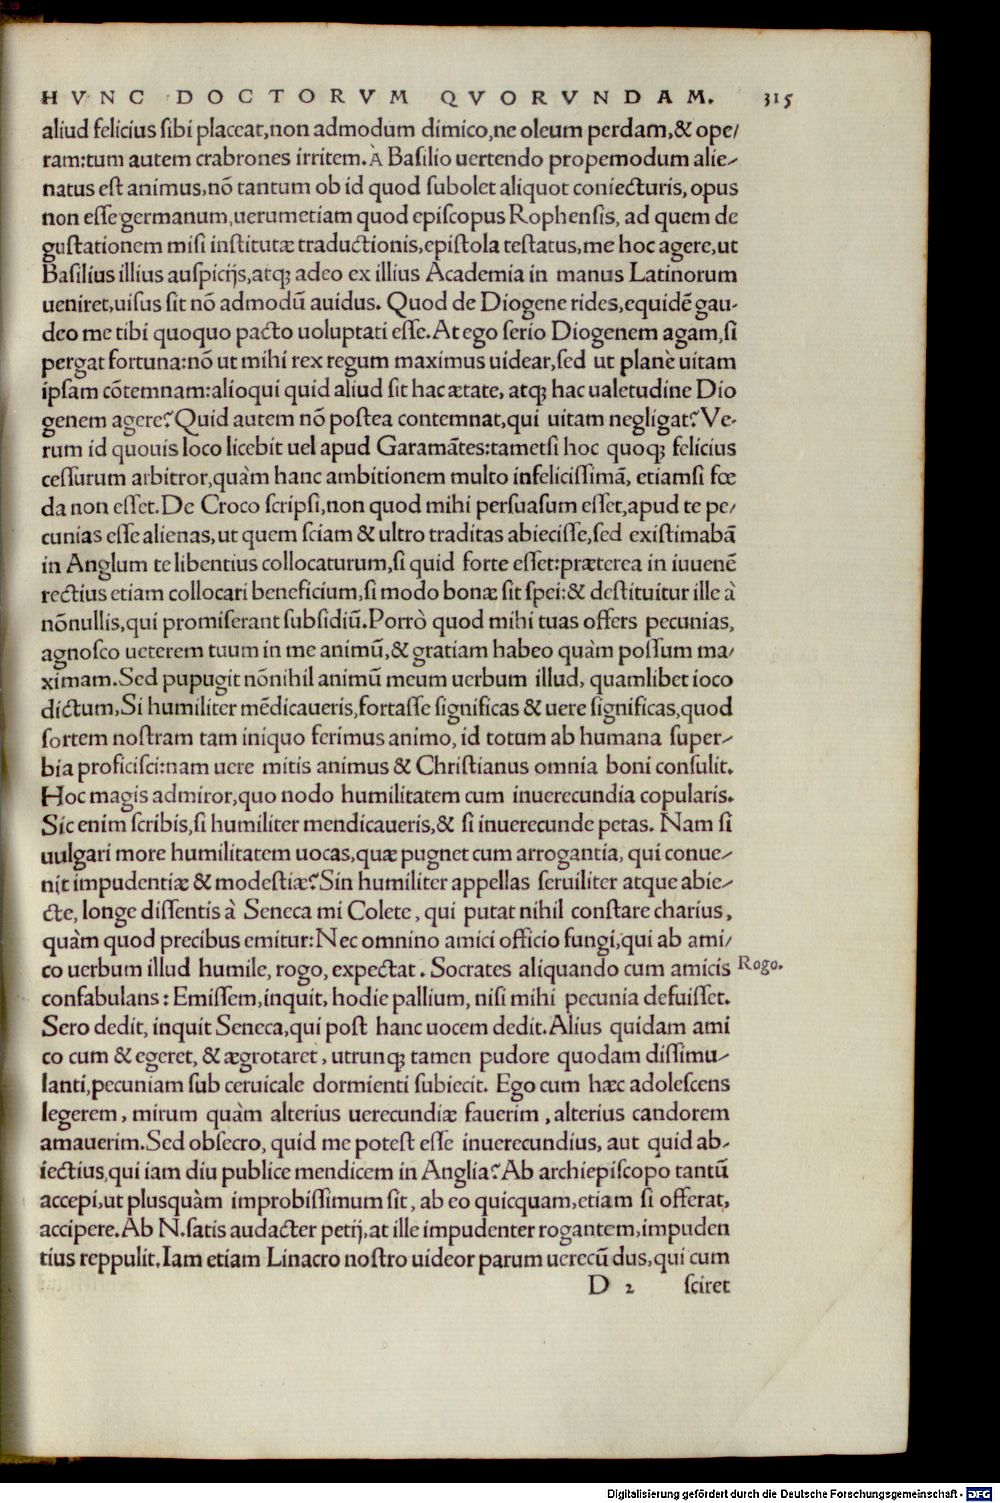 HVNC DOCTORVM QVORVNDAM. 315
aliud felicius sibi placeat,non admodum dimico,ne oleum perdam,& ope/
ram:tum autem crabrones irritem.À Basilio uertendo propemodum alie-
natus est animus,nō tantum ob id quod subolet aliquot coniecturis, opus
non esse germanum,uerumetiam quod episcopus Rophensis, ad quem de
gustationem misi institutæ traductionis,epistola testatus,me hoc agere,ut
Basilius illius auspicijs,atq; adeo ex illius Academia in manus Latinorum
ueniret,uisus sit nō admodū auidus. Quod de Diogene rides,equidē gau-
deo me tibi quoquo pacto uoluptati esse.At ego serio Diogenem agam,si
pergat fortuna:nō ut mihi rex regum maximus uidear,sed ut planè uitam
ipsam cōtemnam:alioqui quid aliud sit hac ætate, atq; hac ualetudine Dio
genem agere? Quid autem nō postea contemnat,qui uitam negligat? Ve-
rum id quouis loco licebit uel apud Garamātes:tametsi hoc quoq; felicius
cessurum arbitror,quàm hanc ambitionem multo infelicissimā, etiamsi fœ
da non esset.De Croco scripsi,non quod mihi persuasum esset,apud te pe/
cunias esse alienas,ut quem sciam & ultro traditas abiecisse,sed existimabā
in Anglum te libentius collocaturum,si quid forte esset:præterea in iuuenē
rectius etiam collocari beneficium,si modo bonæ sit spei:& destituitur ille à
nōnullis,qui promiserant subsidiū.Porrò quod mihi tuas offers pecunias,
agnosco ueterem tuum in me animū,& gratiam habeo quàm possum ma/
ximam.Sed pupugit nōnihil animū meum uerbum illud, quamlibet ioco
dictum,Si humiliter mēdicaueris,fortasse significas & uere significas,quod
sortem nostram tam iniquo ferimus animo, id totum ab humana super-
bia proficisci:nam uere mitis animus & Christianus omnia boni consulit.
Hoc magis admiror,quo nodo humilitatem cum inuerecundia copularis.
Sic enim scribis,si humiliter mendicaueris,& si inuerecunde petas. Nam si
uulgari more humilitatem uocas,quæ pugnet cum arrogantia, qui conue-
nit impudentiæ & modestiæ? Sin humiliter appellas seruiliter atque abie-
cte, longe dissentis à Seneca mi Colete, qui putat nihil constare charius,
quàm quod precibus emitur:Nec omnino amici officio fungi,qui ab ami/
co uerbum illud humile, rogo, expectat. Socrates aliquando cum amicis Rogo.
confabulans: Emissem,inquit, hodie pallium, nisi mihi pecunia defuisset.
Sero dedit, inquit Seneca,qui post hanc uocem dedit.Alius quidam ami
co cum & egeret, & ægrotaret, utrunq; tamen pudore quodam dissimu-
lanti,pecuniam sub ceruicale dormienti subiecit. Ego cum hæc adolescens
legerem, mirum quàm alterius uerecundiæ fauerim, alterius candorem
amauerim.Sed obsecro, quid me potest esse inuerecundius, aut quid ab-
iectius,qui iam diu publice mendicem in Anglia? Ab archiepiscopo tantū
accepi,ut plusquàm improbissimum sit, ab eo quicquam,etiam si offerat,
accipere.Ab N.satis audacter petij,at ille impudenter rogantem,impuden
tius reppulit.Iam etiam Linacro nostro uideor parum uerecū dus,qui cum
D 2 sciret
Digitalisierung gefördert durch die Deutsche Forschungsgemeinschaft - DFG